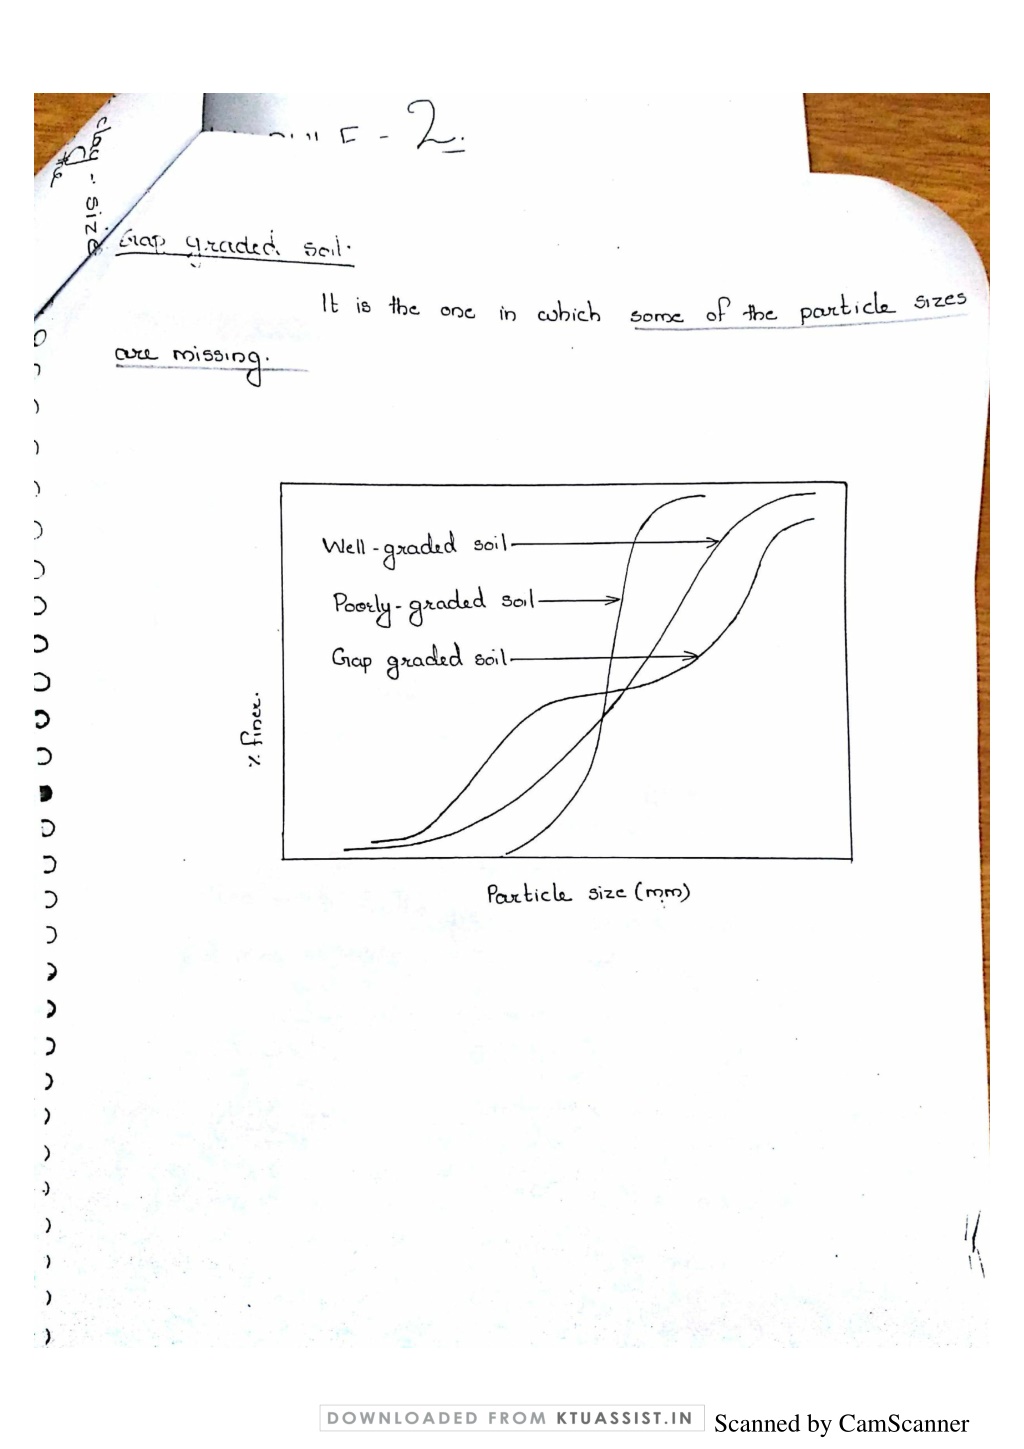 clay - size
the
E - 2.
Gap graded soil.
It is the one in which some of the particle sizes
are missing.
Well-graded soil
Poorly-graded soil
Gap graded soil
% finer.
Particle size (mm)
DOWNLOADED FROM KTUASSIST.IN
Scanned by CamScanner